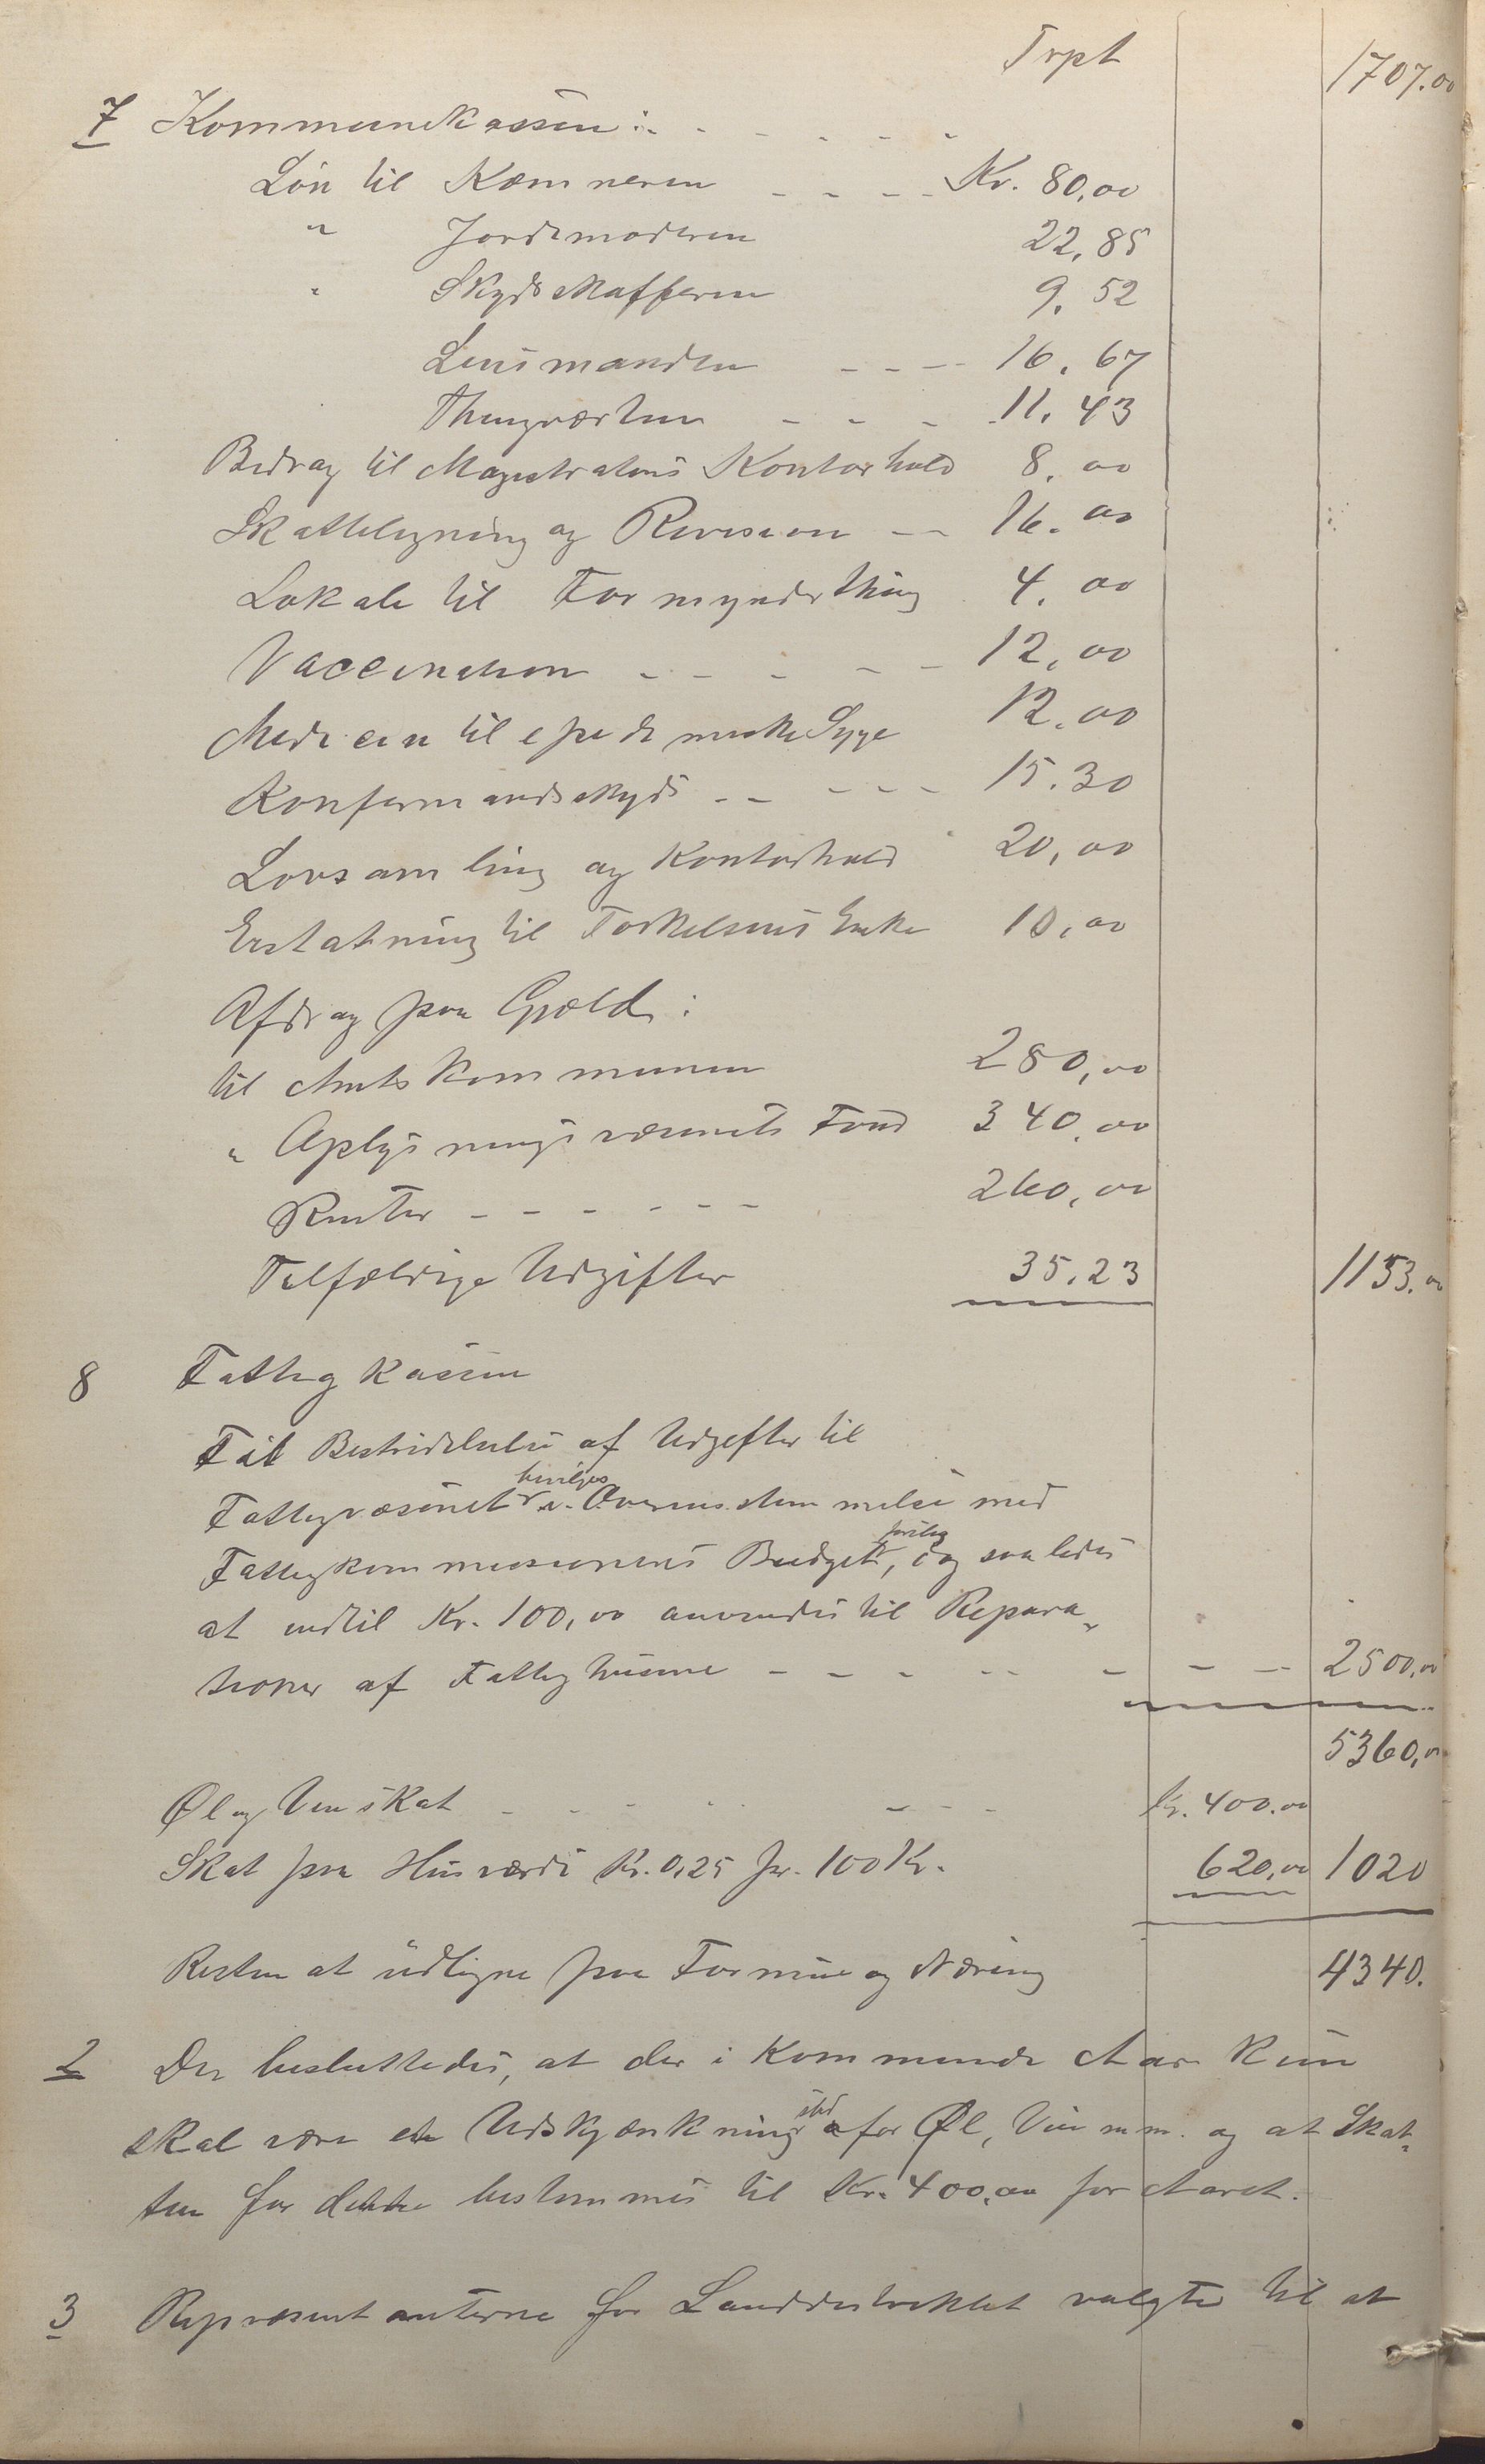 Trpt 1707.00
7 Kommunekassen:
Løn til Kæmneren - - - - Kr. 80,00
" Jordemoderen 22,85
" Skydsskafferen 9.52
Lensmanden - - - - 16.67
Thingværten - - - 11.43
Bidrag til Magistratens Kontorhold 8.00
Skatteligning og Revision - - 16.00
Lokale til Formynderthing 4.00
Vaccination - - - - - 12,00
Medicin til epedemiske Syge 12.00
Konfermandskyds - - - - - 15.30
Lovsamling og Kontorhold 20,00
Erstatning til Torkelsens Enke 10,00
Afdrag paa Gjæld:
til Amtskommunen 280,00
" Oplysningsvæsenets Fond 340,00
Renter - - - - - - 260,00
Tilfældige Udgifter 35.23 1153.00
8 Fattigkassen
Til Bestridelelse af Udgifter til
Fattigvæsenet bevilges i Overensstemmelse med
Fattigkommissionens Budgetforslag, dog saaledes
at indtil Kr. 100,00 anvendes til Repara-
tioner af Fattighusene - - - - - - - - 2500,00
5360,00
Øl og Vinskat - - - - - - - Kr. 400.00
Skat paa Husværdi Kr. 0,25 pr. 100 Kr. 620,00 1020
Resten at udligne paa Formue og Næring 4340.
2 Der besluttedes, at der i kommende Aar kun
skal være et Udskjænkningssted for Øl, Vin m.m. og at Skat-
ten for dette bestemmes til Kr. 400.00 for Aaret.
3 Repræsentanterne for Landdistriktet valgte til at